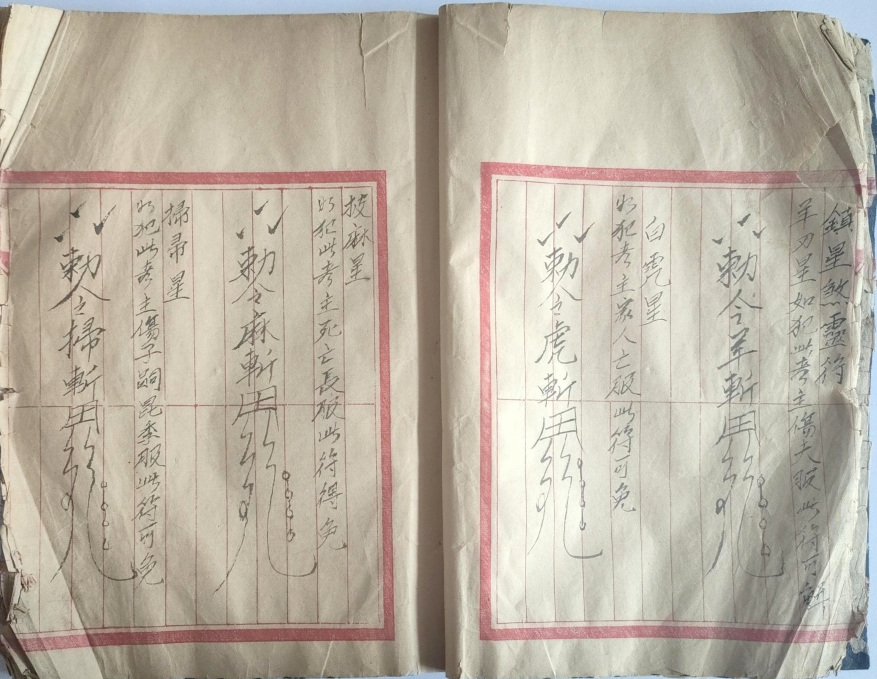 鎮星煞靈符
羊刃星如犯此者主傷夫服此符可解
勅令羊斬
白虎星
如犯者主家人亡服此符可免
勅令虎斬
披麻星
如犯此者主死亡長服此符得免
勅令麻斬
掃帚星
如犯此者主傷子嗣昆季服此符可免
勅令掃斬